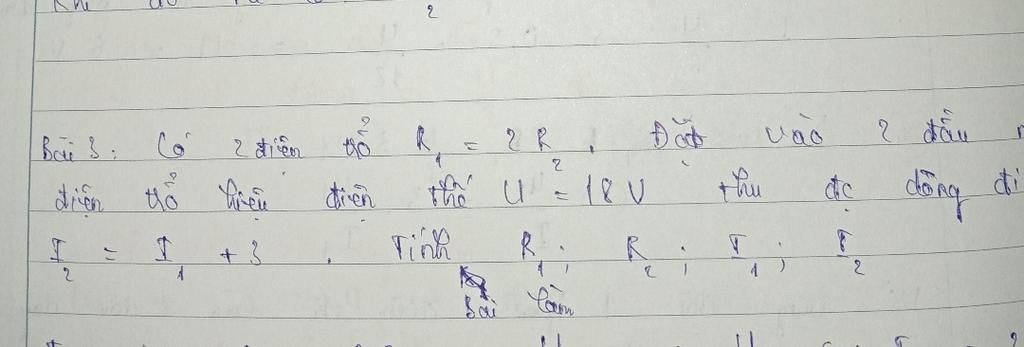 2
Bài 3: Có 2 điện trở R1 = 2R2. Đặt vào 2 đầu
điện trở hiệu điện thế U = 18V thu đc dòng đi
I2 = I1 + 3. Tính R1; R2; I1; I2
Bài làm